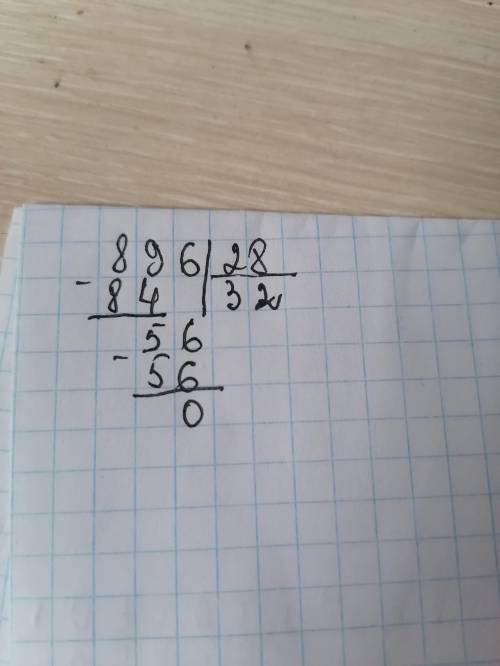 896 28
- 84 32
- 56
56
0